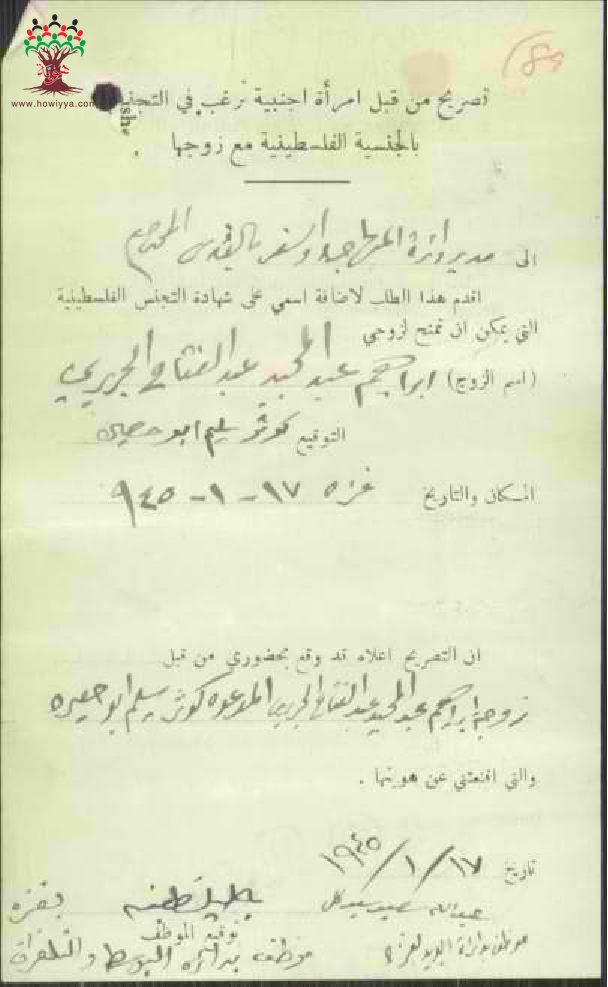 89
www.howiyya.com
تصريح من قبل امرأة اجنبية ترغب في التجنس
بالجنسية الفلسطينية مع زوجها
she
الى مدير دائرة المهاجرة والسفر بالقدس المحترم
اقدم هذا الطلب لاضافة اسمي على شهادة التجنس الفلسطينية
التي يمكن ان تمنح لزوجي
(اسم الزوج) ابراهيم عبد المجيد عبد الفتاح الجريري
التوقيع كوثر سليم ابو
المكان والتاريخ غزه ١٧-١-٩٤٥
ان التصريح اعلاه قد وقع بحضوري من قبل
زوجة ابراهيم عبد المجيد عبد الفتاح الجريري المدعوه كوثر سليم ابو
والتي اقنعتني عن هويتها .
تاريخ ١٧/١/١٩٤٥
عبدالله سعيد بغزه
توقيع الموظف
موظف بدائرة البريد بغزه موظف بدائره البوسطه والتلغراف